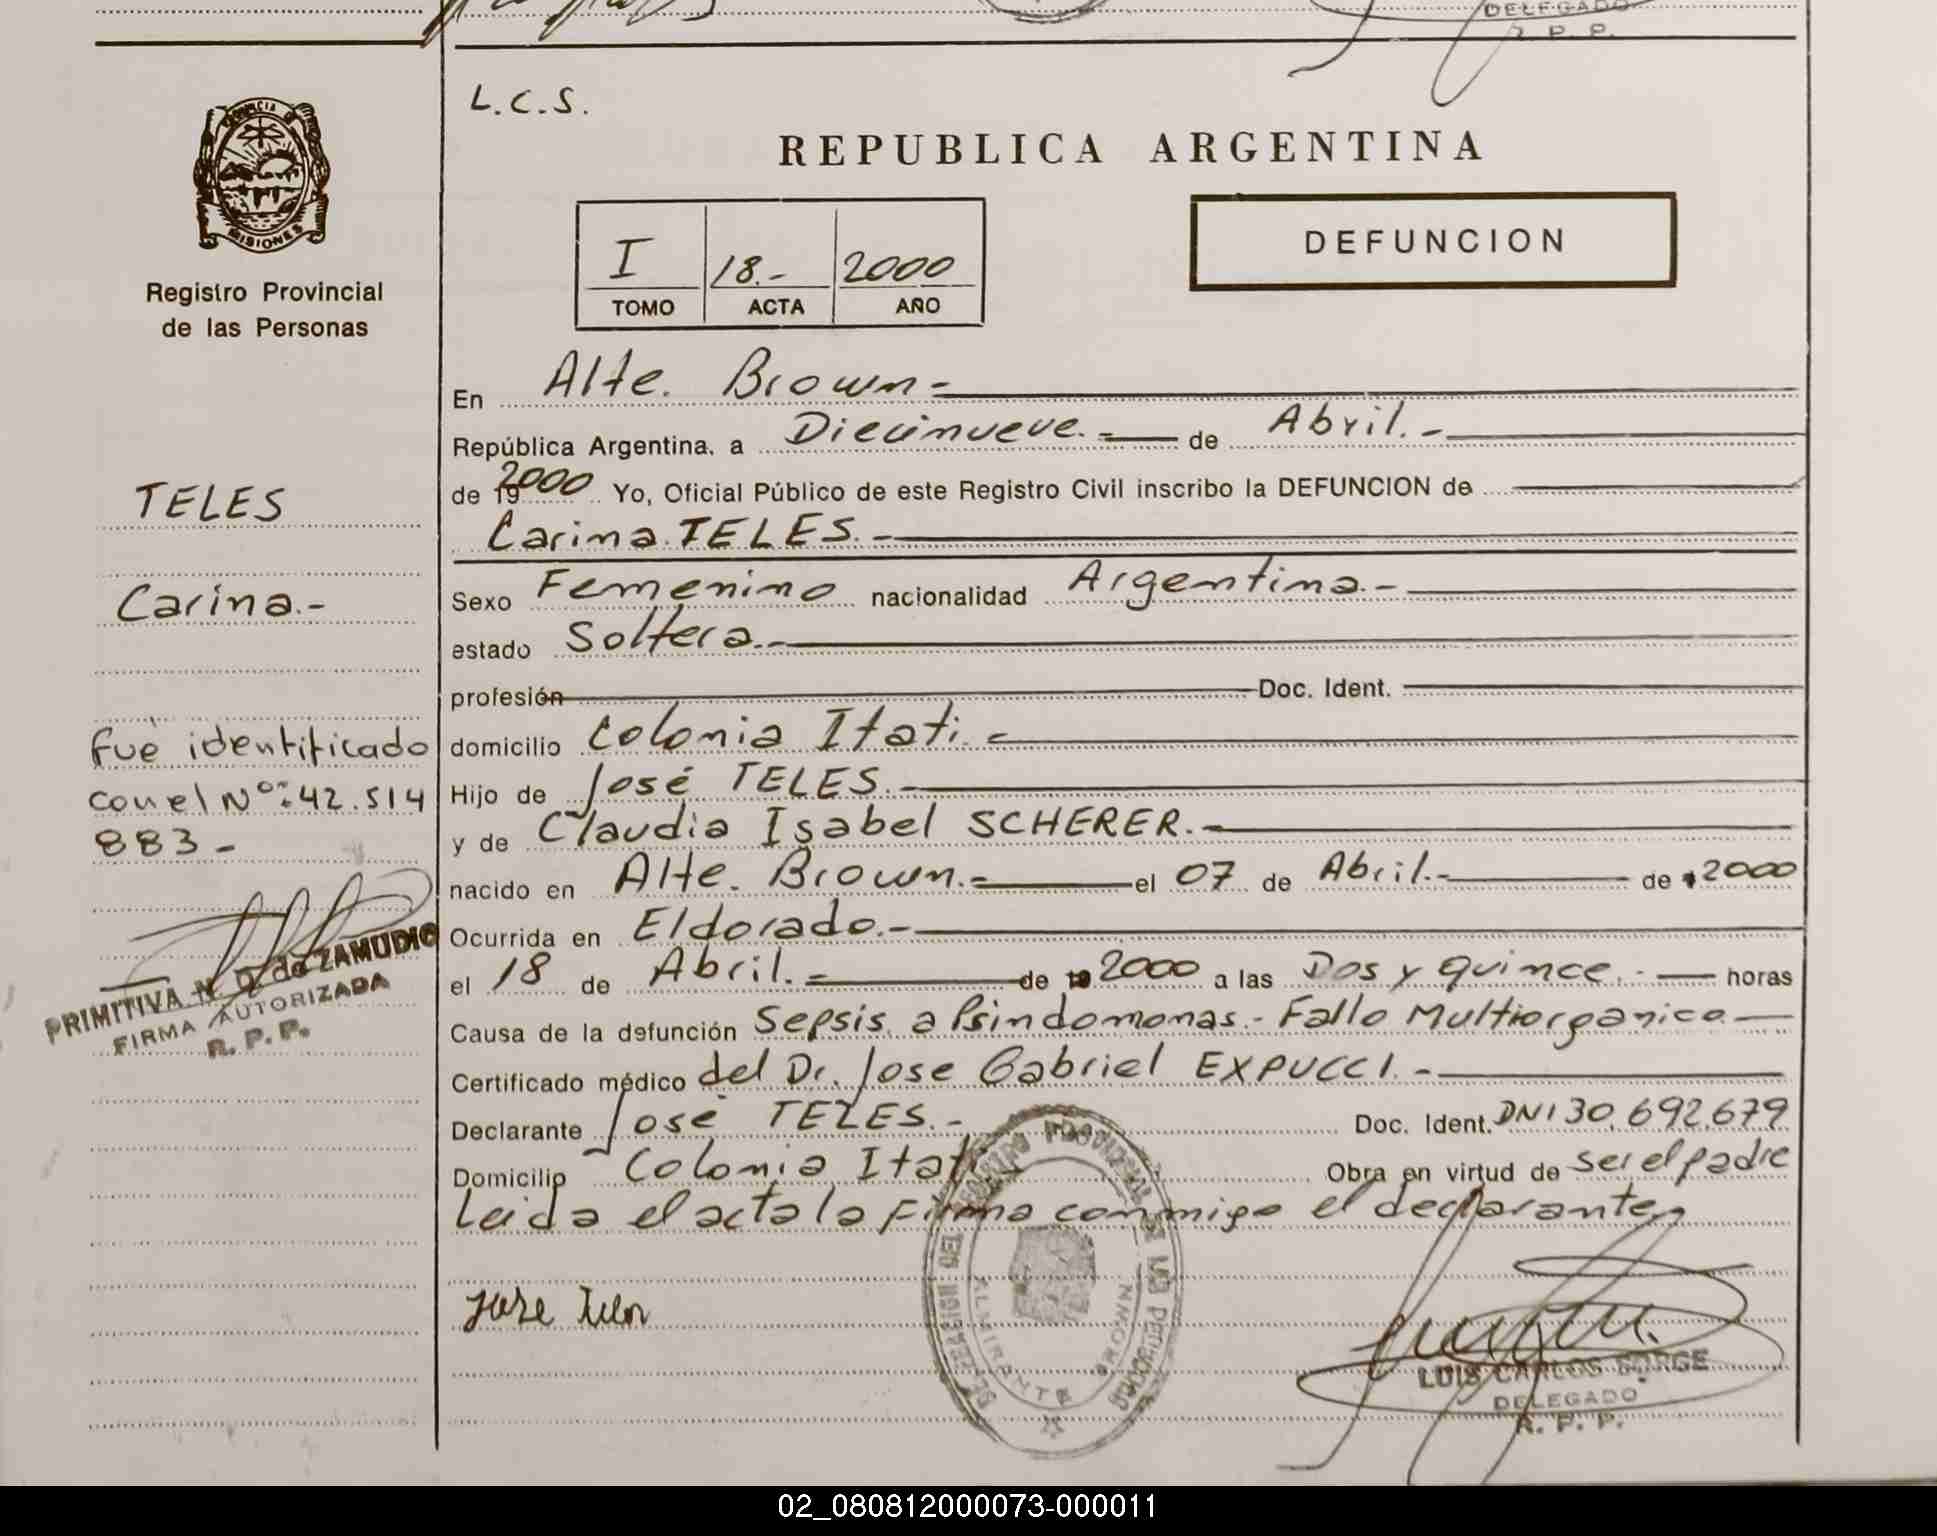 DELEGADO
R. P. P.
L.C.S.
REPUBLICA ARGENTINA
PROVINCIA DE
MISIONES
Registro Provincial
de las Personas
I 18.- 2000
TOMO ACTA AÑO
DEFUNCION
TELES
Carina.-
fué identificado
con el Nº: 42.514
883-
PRIMITIVA N. D. de ZAMUDIO
FIRMA AUTORIZADA
R. P. P.
En Alte. Brown-
República Argentina, a Diecinueve.- de Abril.-
de 192000 Yo, Oficial Público de este Registro Civil inscribo la DEFUNCION de
Carina TELES.-
Sexo Femenino nacionalidad Argentina.-
estado Soltera.-
profesión Doc. Ident.
domicilio Colonia Itati.-
Hijo de José TELES.-
y de Claudia Isabel SCHERER.-
nacido en Alte. Brown.- el 07 de Abril.- de 2000
Ocurrida en Eldorado.-
el 18 de Abril.- de 2000 a las Dos y quince.- horas
Causa de la defunción Sepsis a Psindomonas.- Fallo Multiorganico
Certificado médico del Dr. Jose Gabriel EXPUCCI.-
Declarante José TELES.- Doc. Ident. DNI 30.692.679
Domicilio Colonia Itati Obra en virtud de ser el padre
Leida el acta la firma conmigo el declarante
Jose Teles
REGISTRO PROVINCIAL DE LAS PERSONAS
ALMIRANTE BROWN
LUIS CARLOS BORGE
DELEGADO
R. P. P.
02_080812000073-000011